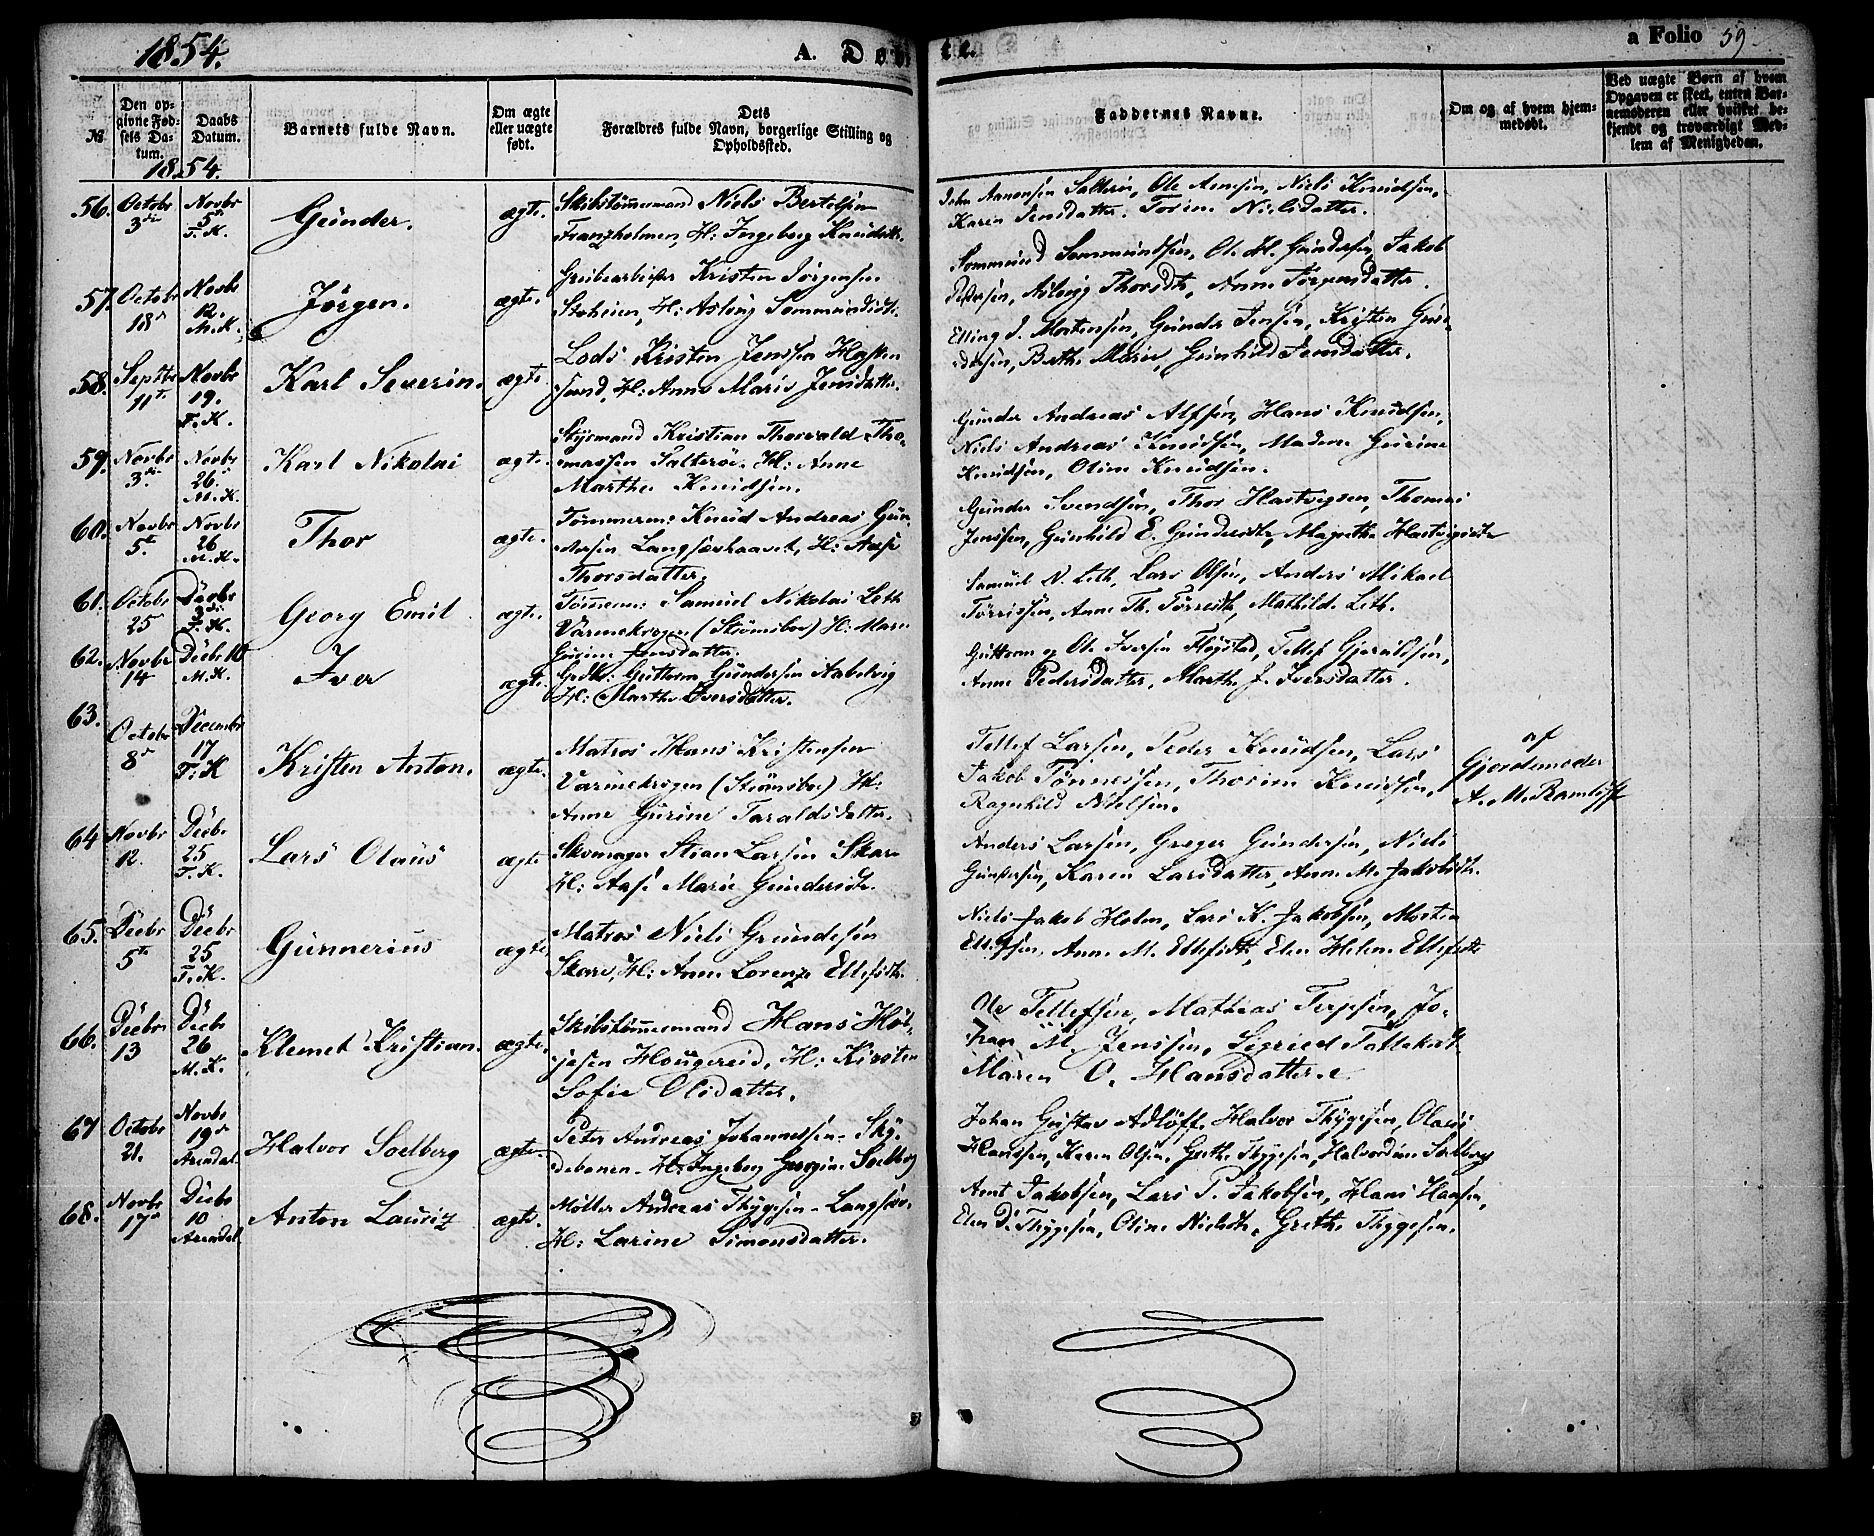 1854.
A. Døbte.
a Folio 59.
№
Den opgivne Fødsels Datum.
Daabs Datum.
Barnets fulde Navn.
Om ægte eller uægte født.
Dets Forældres fulde Navn, borgerlige Stilling og Opholdssted.
Faddernes Navne.
Om og af hvem hjemmedøbt.
Ved uægte Børn af hvem Opgaven er skeet, enten Barnemoderen eller hvilket bekjendt og troværdigt Medlem af Menigheden.
1854.
56. Octobr 3die Novbr 5te T. K. Gunder. ægte. Skibstømmermand Niels Bertelsen
Franzholmen, H: Ingeborg Knudsdt.
John Aanonsen Salterøe, Ole Arnesen, Niels Knudsen,
Karen Jensdatter. Torine Nielsdatter.
57. Octobr 18de Novbr 12. M. K. Jørgen. ægte. Grubearbeider Kristen Jørgensen
Stoheien, H: Asloug Sommundsdt.
Sommund Sommundsen, O. H. Gundersen, Jakob
Pedersen, Asloug Thorsdt, Anne Jørgensdatter.
58. Septbr 11te Novbr 19. T. K. Karl Severin. ægte. Lods Kristen Jensen Hasken
sund, H: Anne Marie Jensdatter.
Elling J. Mortensen, Gunder Jensen, Kristen Gun-
dersen, Berthe Marie, Gunhild Jensdatter.
59. Novbr 3die Novbr 26. M. K. Karl Nikolai ægte. Styrmand Kristian Thorvald Tho-
massen Salterøe. H: Anne
Marthe Knudsen.
Gunder Andreas Alfsen, Hans Knudsen,
Niels Andreas Knudsen, Madame Gurine
Knudsen, Oline Knudsen.
60. Novbr 5te Novbr 26 M. K. Thor ægte. Tømmerm: Knud Andreas Gun-
dersen Langsævhaavet, H: Aase
Thorsdatter.
Gunder Svendsen, Thor Hartvigsen, Thomas
Jenssen, Gunhild E. Gundersdt, Magrethe Hartvigsdt
61. Octobr 25 Decbr 3die T. K. Georg Emil ægte. Tømmerm: Samuel Nikolai Leth
Varmekrogen (Strømsboe) H: Maren
Gurine Jensdatter.
Samuel N. Leth, Lars Olsen, Anders Mikael
Tørrissen, Anne Th. Tørresdt, Mathilde Leth.
62. Novbr 14 Decbr 10 M. K. Iver ægte. Grdbr: Guttorm Gundersen Aabelvig
H: Marthe Iversdatter.
Guttorm og Ole Iversen Fløystad, Tellef Gjeruldsen,
Anne Pedersdatter, Marthe J. Iversdatter.
63. Octobr 8de Decembr 17 T. K Kristen Anton. ægte. Matros Hans Kristensen
Varmekrogen (Strømsboe) H:
Anne Gurine Taraldsdatter.
Tellef Larsen, Peder Knudsen, Lars
Jakob Tønnessen, Thorine Knudsen,
Ragnhild Nielsen.
af
Gjordemoder
A. M.
64 Novbr 12. Decbr 25 T. K. Lars Olaus ægte Skomager Stian Larsen Skare
H: Aase Marie Gundersdt.
Anders Larsen, Greger Gundersen, Niels
Gundersen, Karen Larsdatter, Anne M. Jakobsdt.
65. Decbr 5te Decbr 25 T. K. Gunnerius ægte. Matros Niels Gundersen
Skare, H: Anne Lorenze Ellefsdt.
Niels Jakob Holm, Lars K. Jakobsen, Morten
Ellefsen, Anne M. Ellefsdt, Elen Helene Ellefsdt
66. Decbr 13 Decbr 26 M. K. Klemet Kristian. ægte. Skibstømmermand Hans Høb-
jesen Hougereid, H: Kirsten
Sofie Olsdatter.
Ole Tellefsen, Mathias Terjesen, Jo-
han M. Jenssen, Sigried Tallaksdt.
Maren O. Hansdatter.
67 Octobr 21. Novbr 19de Arendal. Halvor Soelberg ægte. Peter Andreas Johannessen - Sky-
debanen. H: Ingeborg Gurine Soelberg
Johan Gustav Adloff, Halvor Thygesen, Olaus
Hanssen, Karen Olsen, Grethe Thygesen, Halvordine Solberg
68. Novbr 17de Decbr 10 Arendal Anton Lauriz ægte. Møller Andreas Thygesen - Langsæv.
H: Larine Simonsdatter.
Arnt Jakobsen, Lars P. Jakobsen, Hans Hansen,
Elen D. Thygesen, Oline Nielsdt, Grethe Thygesen.